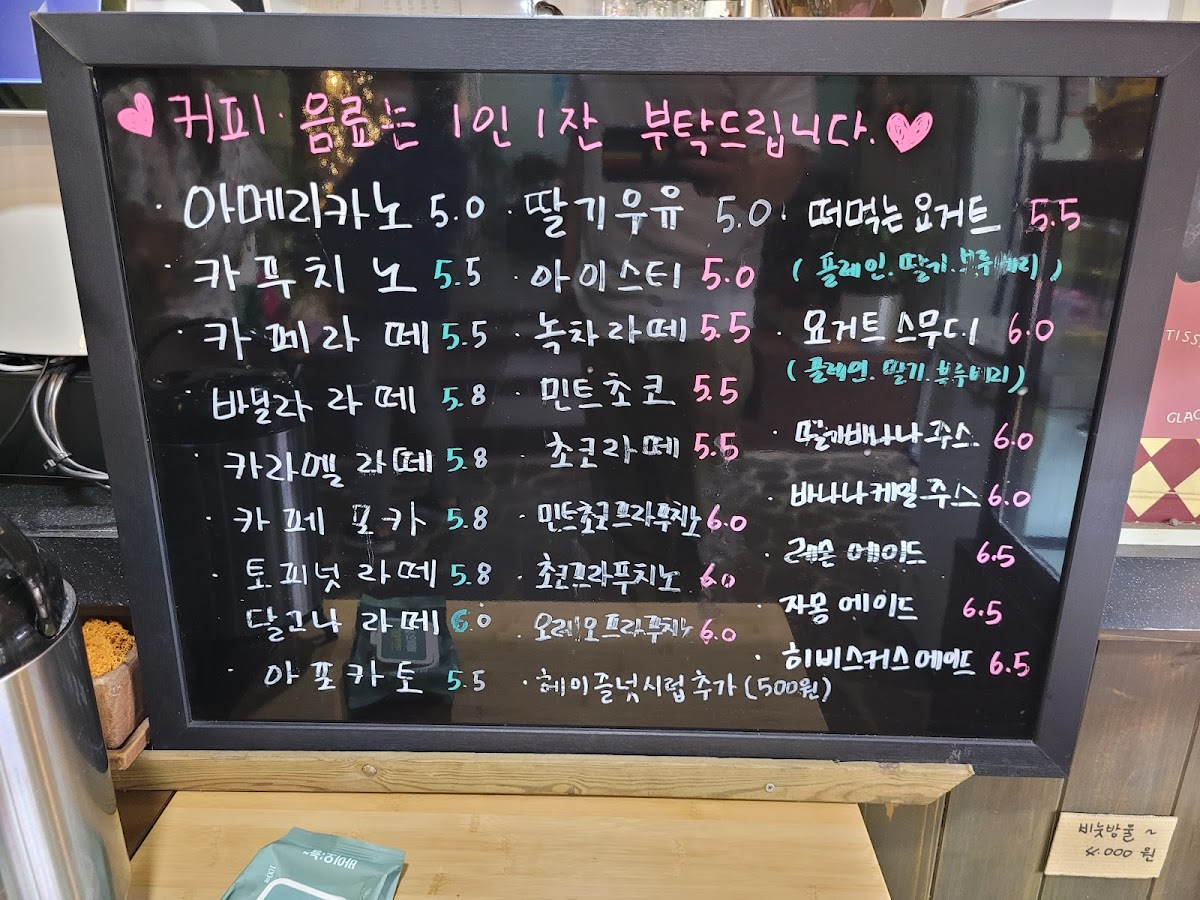 커피·음료는 1인 1잔 부탁드립니다.
· 아메리카노 5.0
· 카푸치노 5.5
· 카페라떼 5.5
· 바닐라 라떼 5.8
· 카라멜 라떼 5.8
· 카페 모카 5.8
· 토피넛 라떼 5.8
달고나 라떼 6.0
· 아포카토 5.5
· 딸기우유 5.0
· 아이스티 5.0
· 녹차라떼 5.5
· 민트초코 5.5
· 초코라떼 5.5
· 민트초코프라푸치노 6.0
· 초코프라푸치노 6.0
· 오레오프라푸치노 6.0
· 헤이즐넛시럽추가 (500원)
· 떠먹는요거트 5.5
(플레인.딸기.블루베리)
· 요거트스무디 6.0
(플레인.딸기.블루베리)
· 딸기바나나주스 6.0
· 바나나케일주스 6.0
· 레몬에이드 6.5
· 자몽에이드 6.5
· 히비스커스에이드 6.5
비눗방울~
4.000원
TISS
GLAC
100%